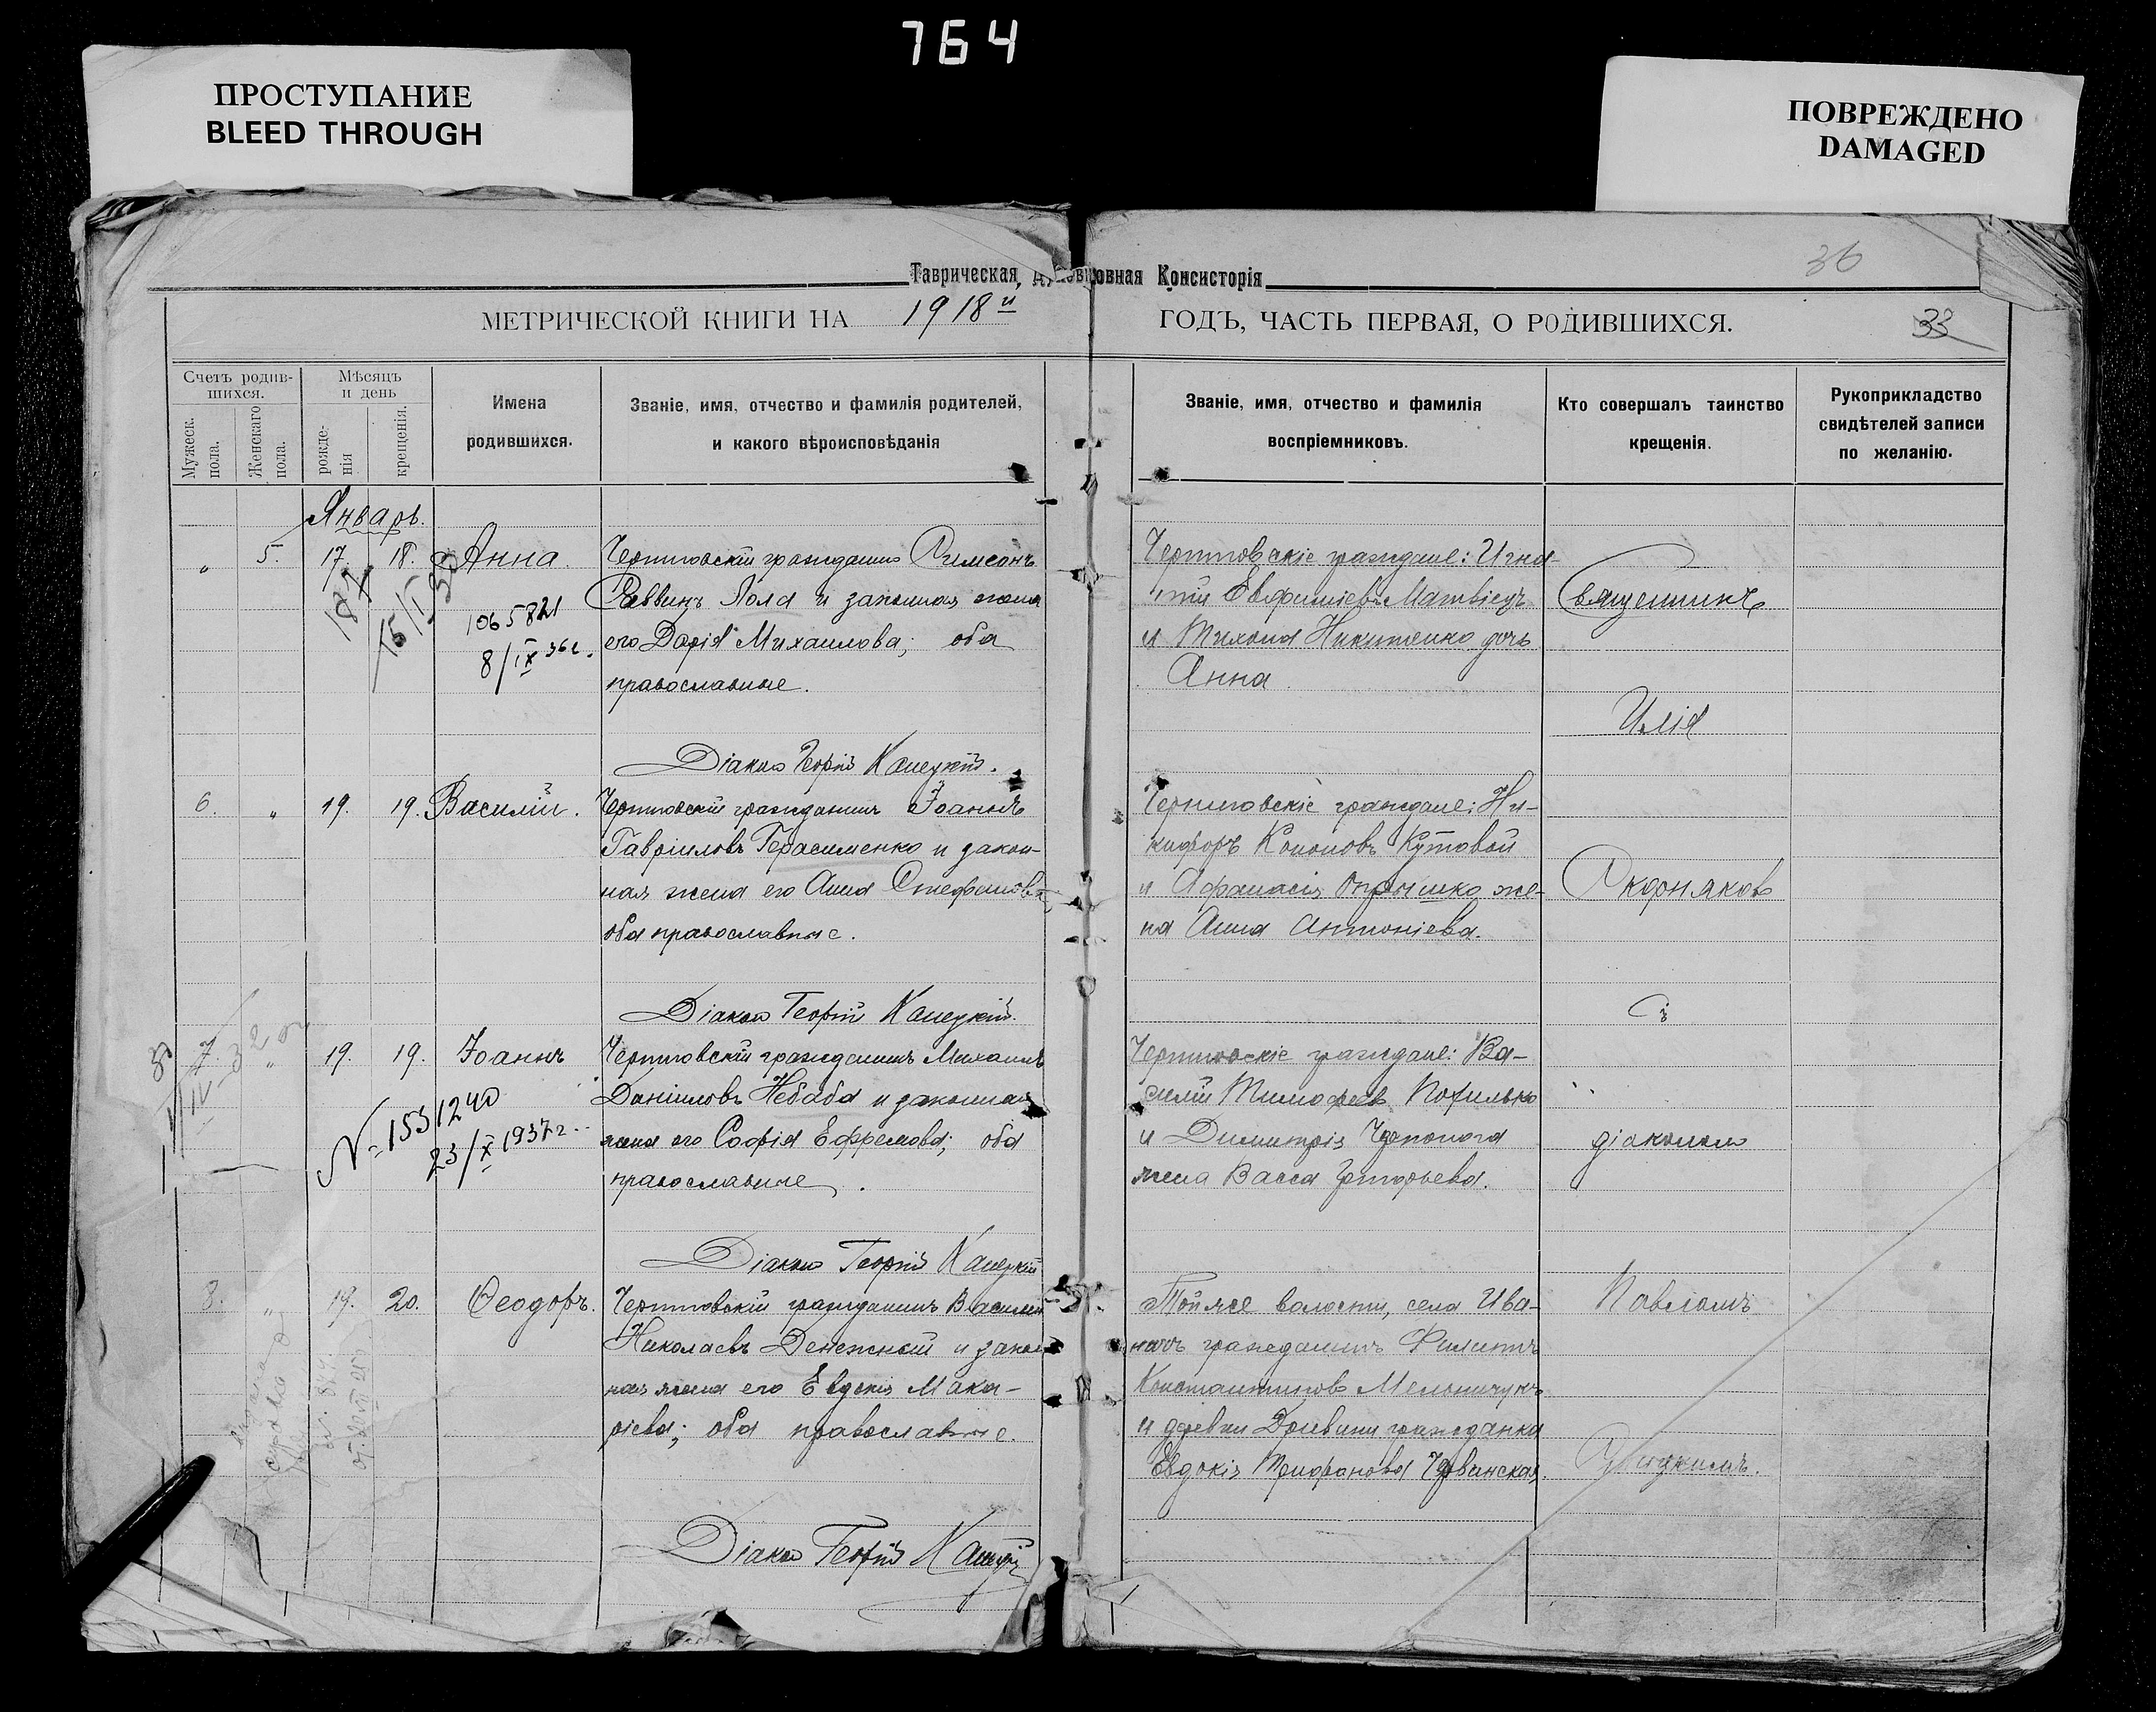 764
ПРОСТУПАНИЕ
BLEED THROUGH
ПОВРЕЖДЕНО
DAMAGED
Таврическая Духовная Консисторія
36
МЕТРИЧЕСКОЙ КНИГИ НА 1918й ГОДЪ, ЧАСТЬ ПЕРВАЯ, О РОДИВШИХСЯ.
33
Счетъ родив-
шихся.
Мужеск. пола.
Женскаго пола.
Мѣсяцъ
и день
рожде-
нія
крещенія.
Имена
родившихся.
Званіе, имя, отчество и фамилія родителей,
и какого вѣроисповѣданія
Званіе, имя, отчество и фамилія
воспріемниковъ.
Кто совершалъ таинство
крещенія.
Рукоприкладство
свидѣтелей записи
по желанію.
Январь.
„ 5. 17. 18. Анна.
1065821
8/IX 36г.
Черниговскій гражданинъ Симеонъ
Саввинъ Лола и законная жена
его Дарія Михаилова; оба
православные.
Діаконъ Георгій
Черниговскіе граждане: Игна-
тій Евфиміевъ Матвіецъ
и Тихона Никитенко дочь
Анна
Священникъ
Илія
6. „ 19. 19. Василій.
Черниговскій гражданинъ Іоаннъ
Гавріиловъ Герасименко и закон-
ная жена его Анна Стефанова
оба православные.
Діаконъ Георгій
Черниговскіе граждане: Ни-
кифоръ Кононовъ Кутовой
и Афанасія же-
на Анна Антоніева.
Скорняковъ
съ
7. „ 19. 19. Іоаннъ
№ 1531240
23/X 1937г.
Черниговскій гражданинъ Михаилъ
Даніиловъ Небаба и законная
жена его Софія Ефремова; оба
православные.
Діаконъ Георгій
Черниговскіе граждане: Ва-
силій Тимофеевъ Похилько
и Димитрія жена Васса Григорьева.
діакономъ
8. „ 19. 20. Феодоръ.
Черниговскій гражданинъ Василій
Николаевъ Денежный и закон
ная жена его Евдокія Мака-
ріева; оба православные.
Діаконъ Георгій
Той же волости, села Ива-
гражданинъ Филиппъ
Константиновъ Мельничукъ
и деревни гражданка
Евдокія Трифанова Червинская.
Павломъ